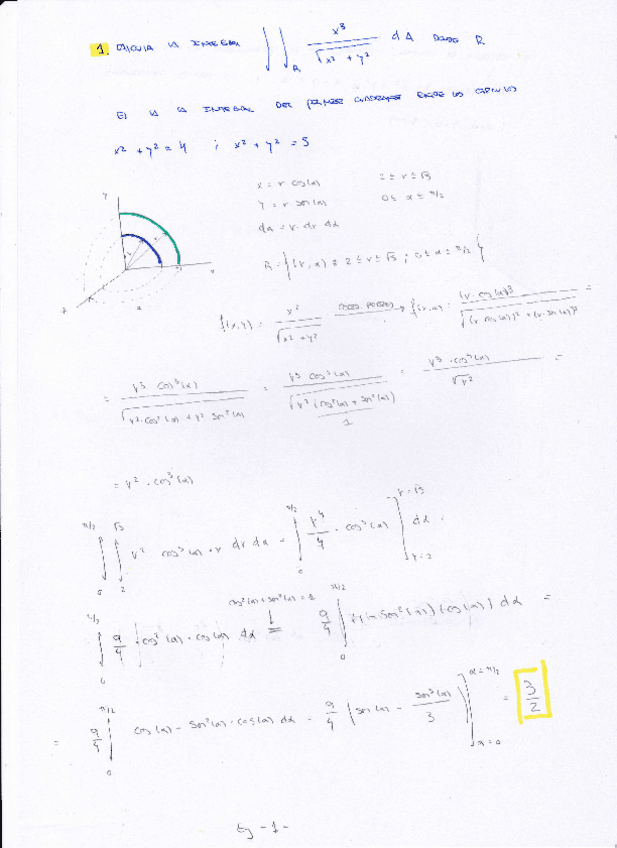 1. CALCULA LA INTEGRAL ∬_R x³/√(x² + y²) dA DONDE R
ES LA INTEGRAL DEL PRIMER CUADRANTE ENTRE LOS CÍRCULOS
x² + y² = 4 ; x² + y² = 5
x = r cos(α) 2 ≤ r ≤ √5
y = r sen(α) 0 ≤ α ≤ π/2
dA = r · dr dα
R = {(r, α) : 2 ≤ r ≤ √5 ; 0 ≤ α ≤ π/2}
f(x,y) = x²/√(x² + y²) → f(r,α) = (r cos(α))³/√((r cos(α))² + (r·sen(α))²) =
= r³ cos³(α)/√(r²·cos²(α) + r² sen²(α)) = r³ cos³(α)/√(r² (cos²(α) + sen²(α))) = r³ · cos³(α)/√r² =
1
= r² · cos³(α)
∫_0^{π/2} ∫_2^{√5} r² cos³(α) · r dr dα = ∫_0^{π/2} r⁴/4 · cos³(α) ]_{r=2}^{r=√5} dα =
cos²(α) + sen²(α) = 1
∫_0^{π/2} 9/4 cos²(α) · cos(α) dα = 9/4 ∫_0^{π/2} (1 - sen²(α)) (cos(α)) dα =
= 9/4 ∫_0^{π/2} cos(α) - sen²(α) · cos(α) dα = 9/4 (sen(α) - sen³(α)/3) ]_{α=0}^{α=π/2} = 3/2
Ej - 1 -